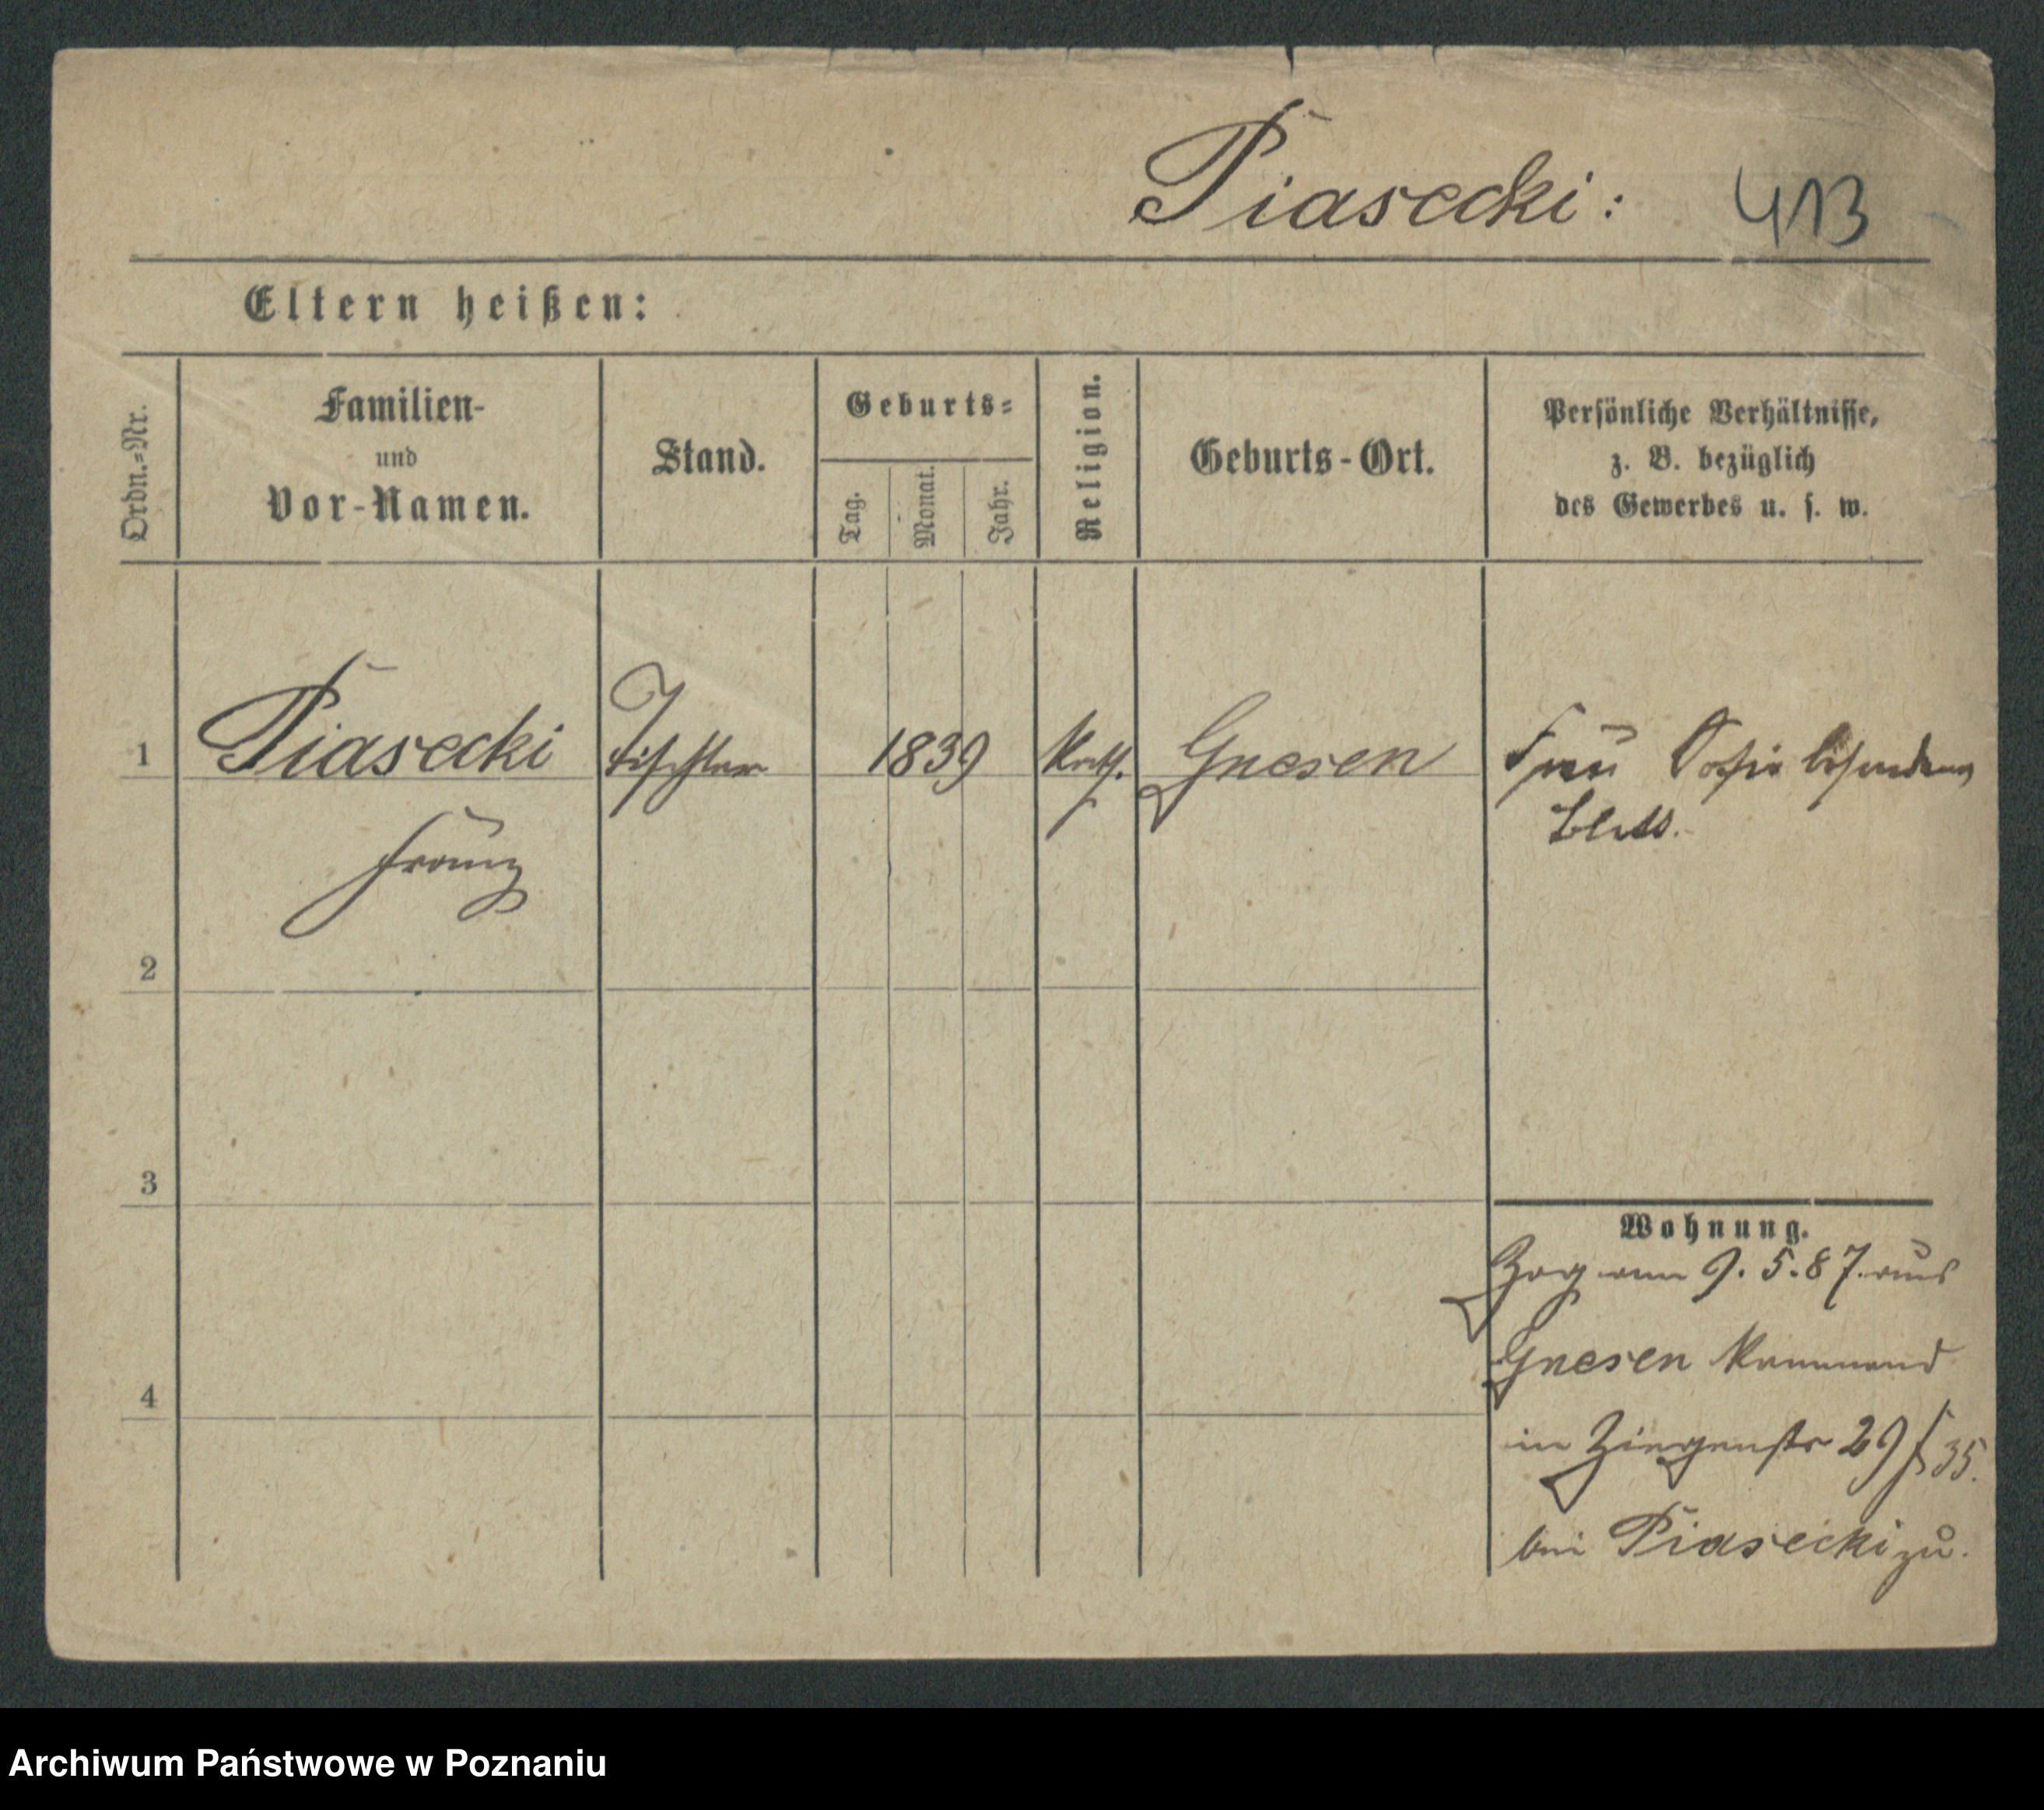 Piasecki: 413
Eltern heißen:
Ordn.=Nr.
Familien-
und
Vor-Namen.
Stand.
Geburts=
Tag.
Monat.
Jahr.
Religion.
Geburts-Ort.
Persönliche Verhältnisse,
z. B. bezüglich
des Gewerbes u. s. w.
1 Piasecki Tischler 1839 Kath. Gnesen Frau
Blatt.
Franz
2
3
4
Wohnung.
Zog am 9.5.87. aus
Gnesen kommend
in Ziegenstr 29/35.
bei Piasecki zu.
Archiwum Państwowe w Poznaniu